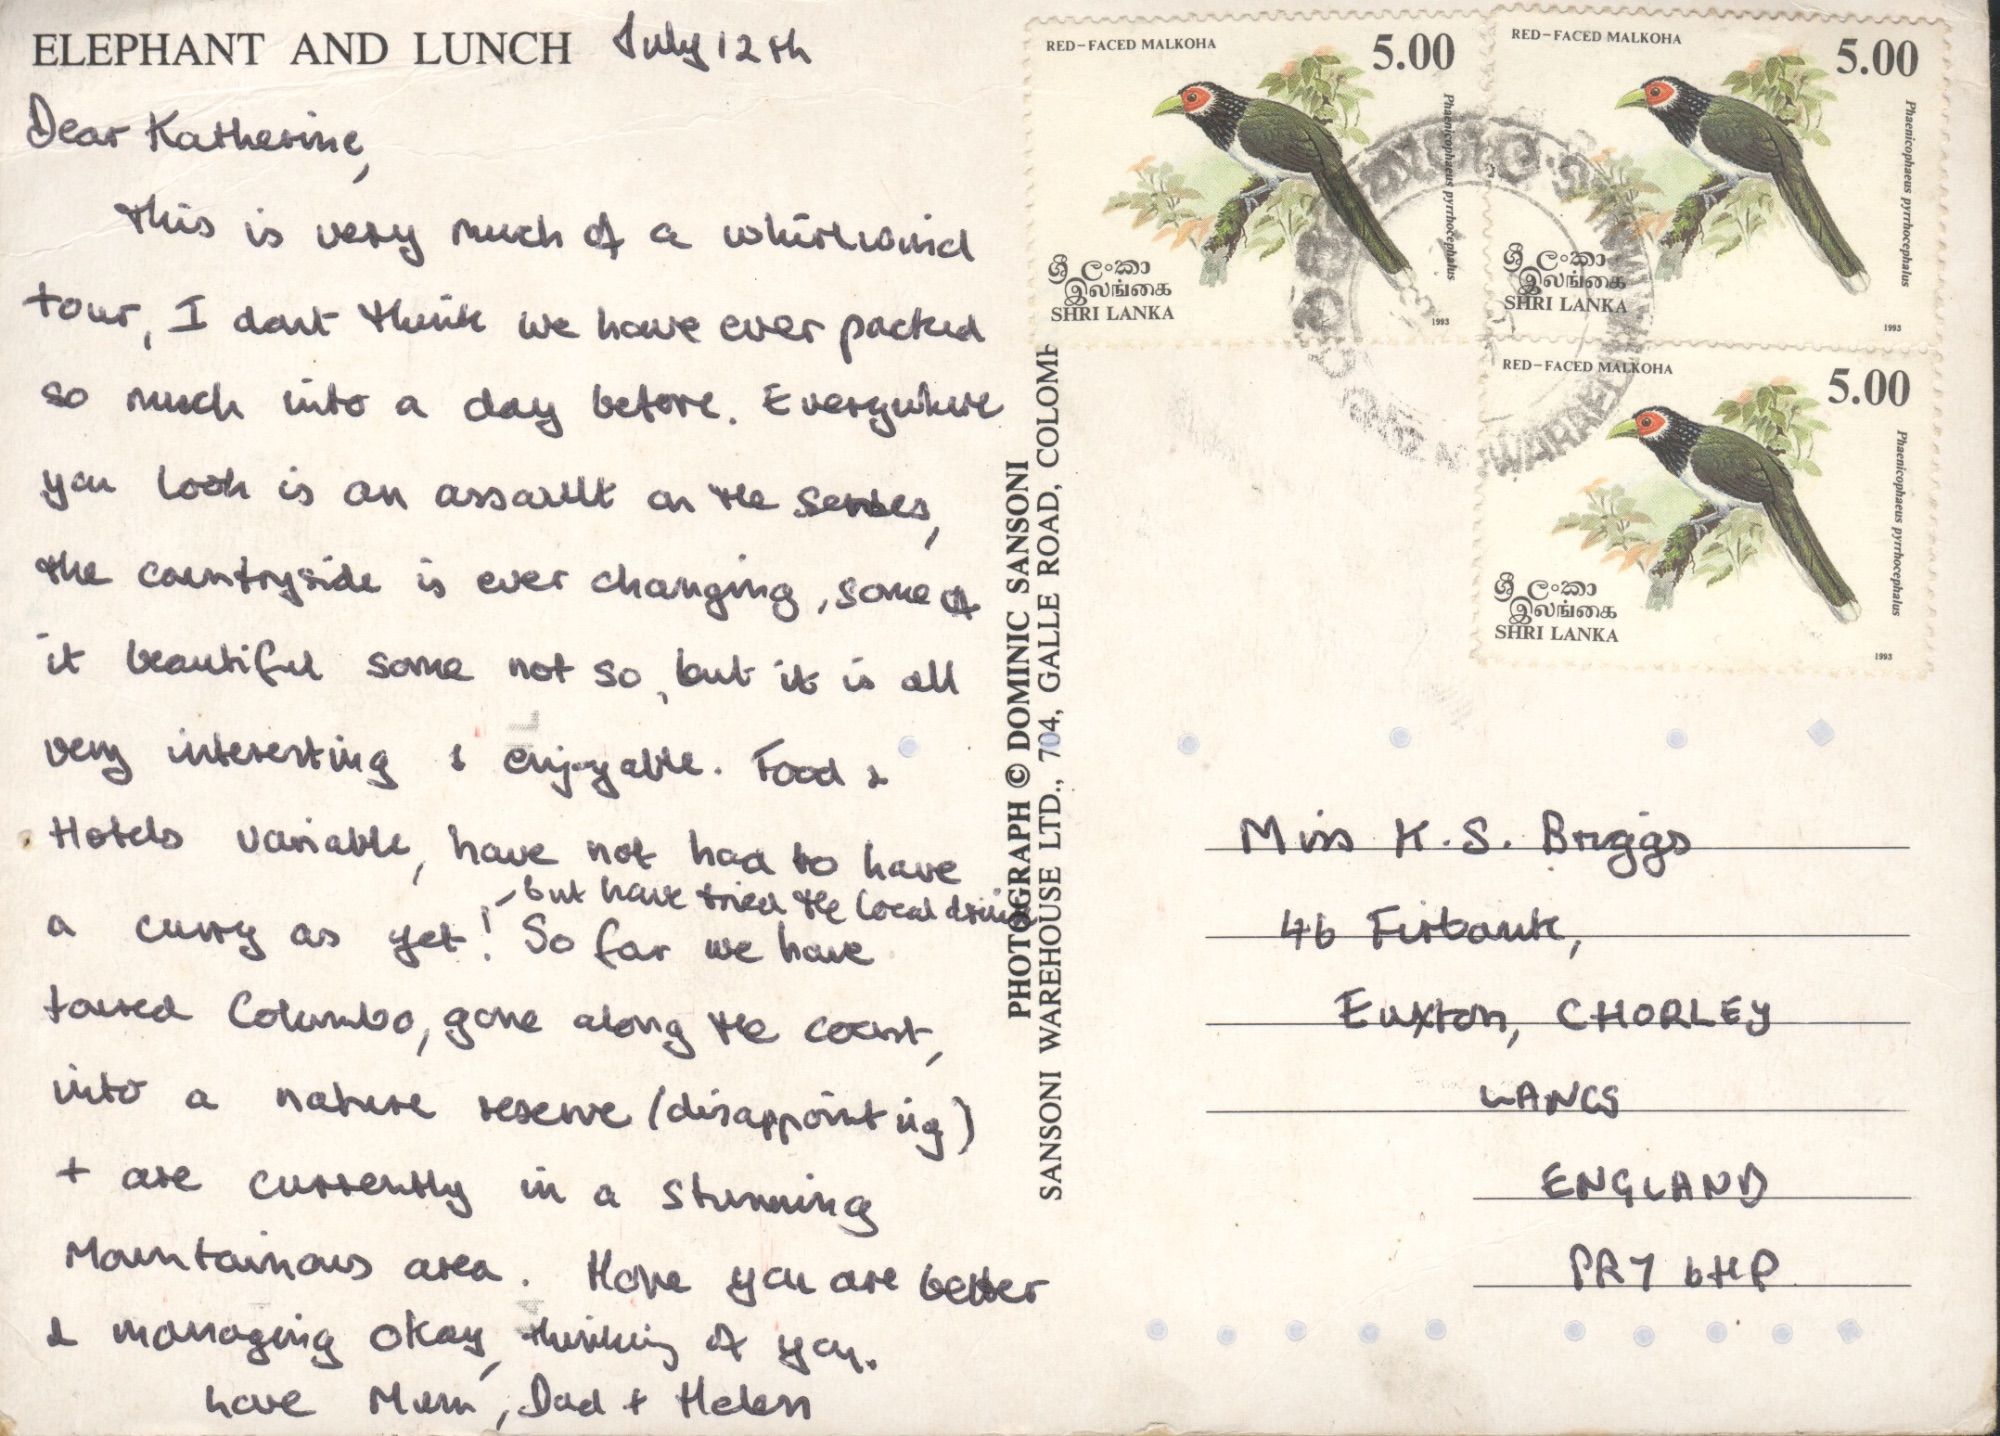 ELEPHANT AND LUNCH July 12th
Dear Katherine,
This is very much of a whirlwind
tour, I dont think we have ever packed
so much into a day before. Everywhere
you look is an assault on the senses,
the countryside is ever changing, some of
it beautiful some not so, but it is all
very interesting & enjoyable. Food &
Hotels variable, have not had to have
- but have tried the local drink
a curry as yet! So far we have
toured Columbo, gone along the coast,
into a nature reserve (disappointing)
+ are currently in a stunning
Mountainous area. Hope you are better
& managing okay, thinking of you.
Love Mum, Dad + Helen
PHOTOGRAPH © DOMINIC SANSONI
SANSONI WAREHOUSE LTD., 704, GALLE ROAD, COLOMB
RED-FACED MALKOHA
5.00
Phaenicophaeus pyrrhocephalus
ශ්‍රී ලංකා
இலங்கை
SHRI LANKA
1993
RED-FACED MALKOHA
5.00
Phaenicophaeus pyrrhocephalus
ශ්‍රී ලංකා
இலங்கை
SHRI LANKA
1993
RED-FACED MALKOHA
5.00
Phaenicophaeus pyrrhocephalus
ශ්‍රී ලංකා
இலங்கை
SHRI LANKA
1993
Miss K.S. Briggs
46 Firbank,
Euxton, CHORLEY
LANCS
ENGLAND
PR7 6HP